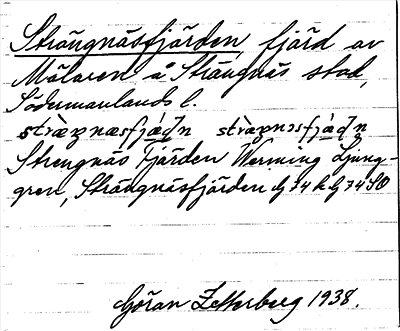 Strängnäsfjärden fjärd av
Mälaren å Strängnäs stad,
Södermanlands l.
stràŋnæsfjáḍn stràŋnɔsfjáḍn
Strengnäs Fjärden Werming Ljung-
gren, Strängnäsfjärden G74 k G74 SO
Göran Zetterberg 1938.